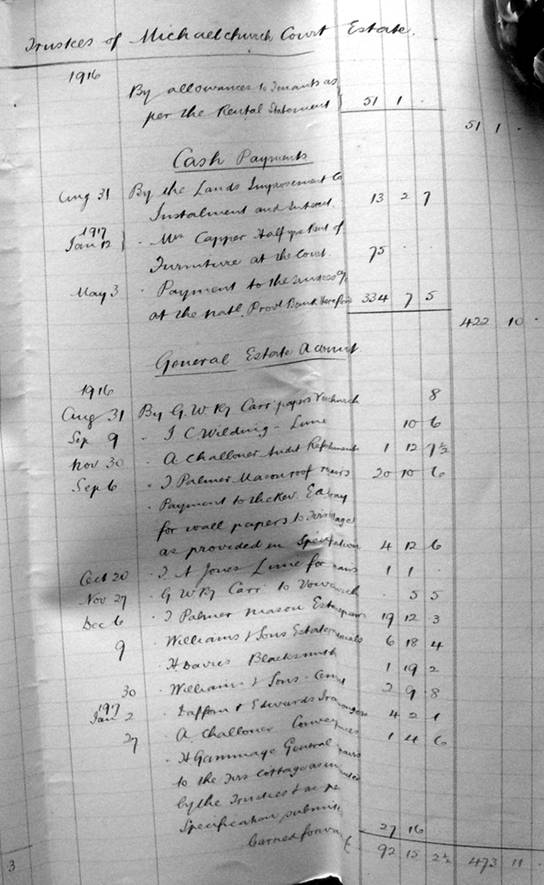 Trustees of Michaelchurch Court Estate.
1916
By allowances to Tenants as
per the Rental Statement 51 1 .
51 1 .
Cash Payments
Aug 31 By the Lands Improvement Co
Instalment and Interest 13 2 7
1917
Jan 12 . Mrs Capper Half yrs Rent of
Furniture at the Court 75 . .
May 3 . Payment to the Trustees a/c
at the Natl. Provl Bank Hereford 334 7 5
422 10 .
General Estate Account
1916
Aug 31 By G. W. Ry Carr papers 8
Sep 9 . J C Wilding - Lime 10 6
Nov 30 . A Challoner Audit Refreshments 1 12 7½
Sep 6 . J Palmer Mason roof repairs 20 10 6
. Payment to the Rev.
for wall papers to
as provided in Specification 4 12 6
Oct 20 . J. A Jones Lime for 1 1 .
Nov 27 . G W Ry Carr. to Vowchurch . 5 5
Dec 6 . J Palmer Mason Est repairs 19 12 3
9 . Williams & Sons Estate 6 18 4
. H Davies Blacksmith 1 19 2
30 . Williams & Sons - 2 9 8
1917
Jan 2 . & Edwards 4 2 1
27 . A Challoner 1 4 6
. H Gammage General repairs
to the Firs Cottage as
by the Trustees & as per
Specification 27 16
carried forward £ 92 15 2½ 473 11 .
3